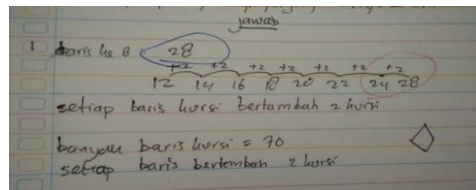 jawab
1 baris ke 8. 28
+2 +2 +2 +2 +2 +2 +2
12 14 16 18 20 22 24 28
setiap baris kursi bertambah 2 kursi
banyak baris kursi = 70
setiap baris bertambah 2 kursi